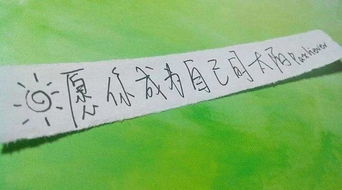 愿你成为自己的太阳